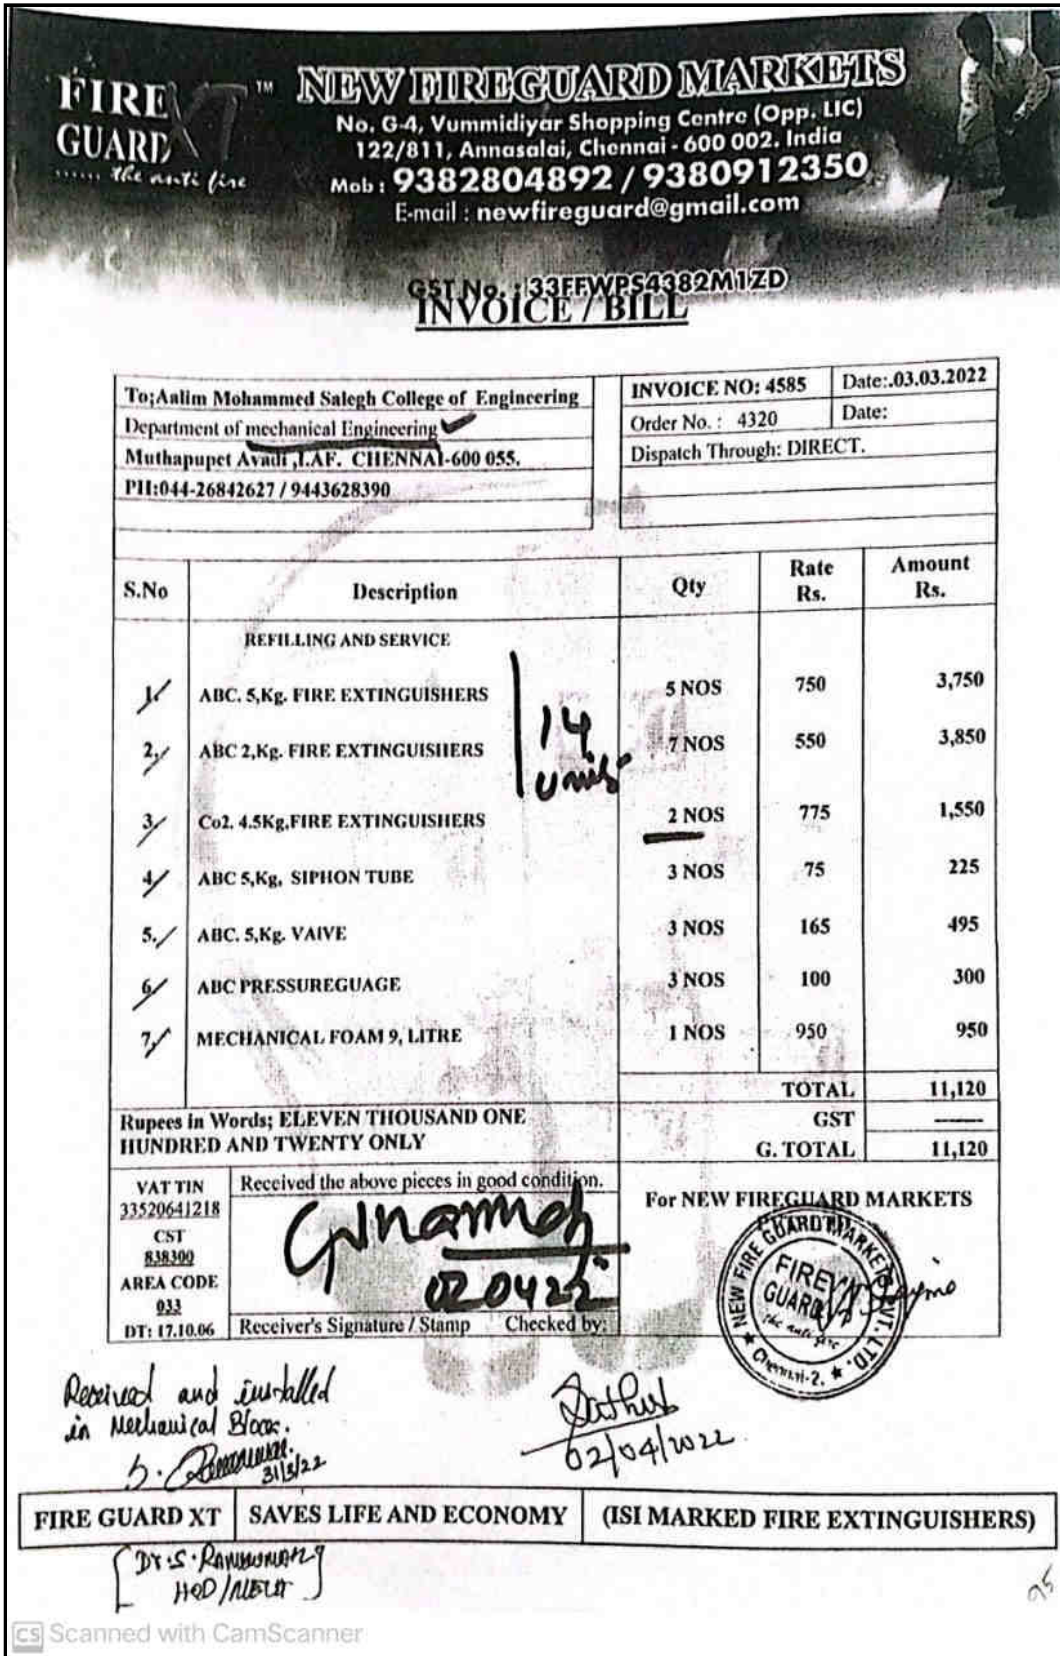 FIRE XT ™
GUARD
...... the anti fire
NEW FIREGUARD MARKETS
No. G-4, Vummidiyar Shopping Centre (Opp. LIC)
122/811, Annasalai, Chennai - 600 002. India
Mob : 9382804892 / 9380912350
E-mail : newfireguard@gmail.com
GST No. : 33FFWPS4382M1ZD
INVOICE / BILL
To;Aalim Mohammed Salegh College of Engineering
Department of mechanical Engineering
Muthapupet Avadi ,I.AF. CHENNAI-600 055.
PH:044-26842627 / 9443628390
INVOICE NO: 4585 Date:.03.03.2022
Order No. : 4320 Date:
Dispatch Through: DIRECT.
S.No Description Qty Rate Rs. Amount Rs.
REFILLING AND SERVICE
1. ABC. 5,Kg. FIRE EXTINGUISHERS 5 NOS 750 3,750
14
units
2, ABC 2,Kg. FIRE EXTINGUISHERS 7 NOS 550 3,850
3, Co2. 4.5Kg.FIRE EXTINGUISHERS 2 NOS 775 1,550
4, ABC 5,Kg. SIPHON TUBE 3 NOS 75 225
5. ABC. 5,Kg. VAIVE 3 NOS 165 495
6, ABC PRESSUREGUAGE 3 NOS 100 300
7, MECHANICAL FOAM 9, LITRE 1 NOS 950 950
TOTAL 11,120
Rupees in Words; ELEVEN THOUSAND ONE
HUNDRED AND TWENTY ONLY
GST ——
G. TOTAL 11,120
VAT TIN
33520641218
CST
838300
AREA CODE
033
DT: 17.10.06
Received the above pieces in good condition.
020422
Receiver's Signature / Stamp Checked by:
For NEW FIREGUARD MARKETS
NEW FIRE GUARD MARKETS PVT. LTD.
FIRE
GUARD
the anti fire
Chennai-2.
Received and installed
in Mechanical Block.
31/3/22
02/04/2022
FIRE GUARD XT SAVES LIFE AND ECONOMY (ISI MARKED FIRE EXTINGUISHERS)
Dr. S.
HOD/MECH
95
CS Scanned with CamScanner